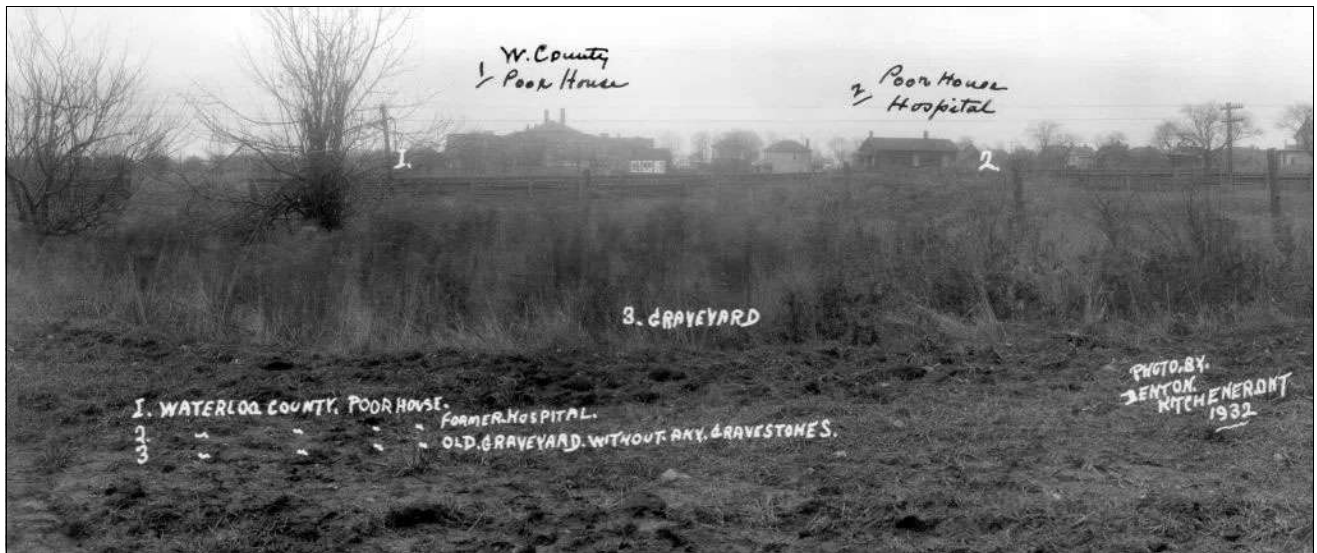 1 W. County
Poor House
2 Poor House
Hospital
1.
2
3. GRAVEYARD
I. WATERLOO. COUNTY. POORHOUSE.
2. " " " " FORMER.HOSPITAL.
3 " " " " OLD.GRAVEYARD.WITHOUT.ANY.GRAVESTONES.
PHOTO.BY.
DENTON.
KITCHENER ONT
1932